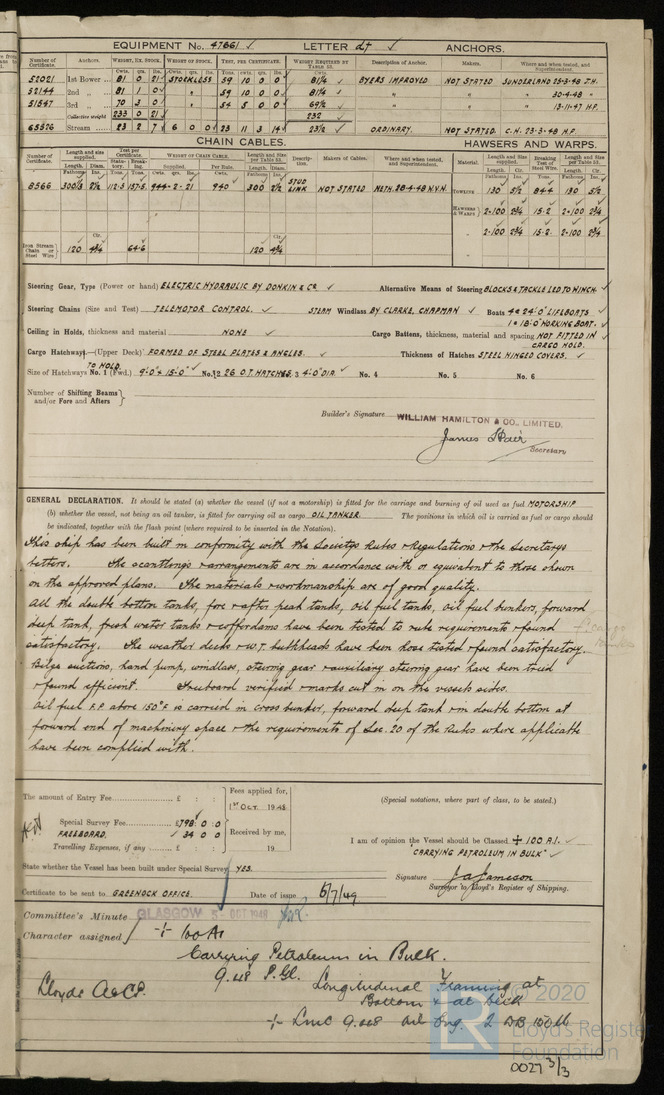 EQUIPMENT No. 47861 ✓ LETTER d† ✓ ANCHORS.
Number of Certificate. Anchors. WEIGHT, EX. STOCK. WEIGHT OF STOCK. TEST, PER CERTIFICATE. WEIGHT REQUIRED BY TABLE 53. Description of Anchor. Makers. Where and when tested, and Superintendent.
Cwts. qrs. lbs. Cwts. qrs. lbs. Tons. cwts. qrs. lbs. Cwts.
52021 1st Bower 81 0 21 STOCKLESS 59 10 0 0 81¼ ✓ BYERS IMPROVED NOT STATED SUNDERLAND 25-3-48 J.H.
52144 2nd „ 81 1 0 " 59 10 0 0 81¼ ✓ " " " 30-4-48 "
51547 3rd „ 70 3 0 " 54 5 0 0 69½ ✓ " " " 13-11-47 H.P.
Collective weight 233 0 21 232 ✓
65526 Stream 23 2 7 6 0 0 23 11 3 14 23½ ✓ ORDINARY. NOT STATED. C.H. 23-3-48 H.P.
CHAIN CABLES. HAWSERS AND WARPS.
Number of Certificate. Length and size supplied. Test per Certificate. WEIGHT OF CHAIN CABLE. Length and size per Table 53. Description. Makers of Cables. Where and when tested, and Superintendent. Material. Length and size supplied. Breaking Test of Steel Wire. Length and size per Table 53.
Length. Diam. Statutory. Breaking. Supplied. Per Rule. Length. Diam. Length. Cir. Length. Cir.
8566 300⅓ 2½ 112·5 157·5 944-2-21 940 300 2½ STUD LINK NOT STATED NETH. 28-4-48 N.V.N. TOWLINE 130 5½ 84·4 130 5½
HAWSERS & WARPS 2-100 2¾ 15·2 2-100 2¾
" 2-100 2¾ 15·2 2-100 2¾
Iron Stream Chain or Steel Wire 120 4¾ 64·6 120 4¾
Steering Gear, Type (Power or hand) ELECTRIC HYDRAULIC BY DONKIN & Co. ✓ Alternative Means of Steering BLOCKS & TACKLE LED TO WINCH. ✓
Steering Chains (Size and Test) TELEMOTOR CONTROL. ✓ STEAM Windlass BY CLARKE, CHAPMAN ✓ Boats 4 @ 24'·0" LIFEBOATS
1 @ 18'·0" WORKING BOAT. ✓
Ceiling in Holds, thickness and material NONE ✓ Cargo Battens, thickness, material and spacing NOT FITTED IN CARGO HOLD.
Cargo Hatchways.—(Upper Deck) FORMED OF STEEL PLATES & ANGLES. ✓ Thickness of Hatches STEEL HINGED COVERS. ✓
TO HOLD.
Size of Hatchways No. 1 (Fwd.) 9'·0" x 15'·0" ✓ No. 2 26 O.T. HATCHES. 3 4'·0" DIA. ✓ No. 4 No. 5 No. 6
Number of Shifting Beams and/or Fore and Afters }
Builder's Signature WILLIAM HAMILTON & CO., LIMITED.
Secretary
GENERAL DECLARATION. It should be stated (a) whether the vessel (if not a motorship) is fitted for the carriage and burning of oil used as fuel MOTORSHIP
(b) whether the vessel, not being an oil tanker, is fitted for carrying oil as cargo OIL TANKER. The positions in which oil is carried as fuel or cargo should
be indicated, together with the flash point (where required to be inserted in the Notation).
This ship has been built in conformity with the Societys Rules & Regulations & the Secretarys
letters. The scantlings & arrangements are in accordance with or equivalent to those shown
on the approved plans. The materials & workmanship are of good quality.
All the double bottom tanks, fore & after peak tanks, oil fuel tanks, oil fuel bunkers, forward
deep tank, fresh water tanks & cofferdams have been tested to rule requirements & found
satisfactory. The weather decks & W.T. bulkheads have been hose tested & found satisfactory.
Bilge suctions, hand pump, windlass, steering gear & auxiliary steering gear have been tried
& found efficient. Freeboard verified & marks cut in on the vessels sides.
Oil fuel F.P. above 150°F is carried in cross bunker, forward deep tank & in double bottom at
forward end of machinery space & the requirements of Sec. 20 of the Rules where applicable
have been complied with.
The amount of Entry Fee £ : : Fees applied for,
1st OCT. 1948 (Special notations, where part of class, to be stated.)
Special Survey Fee £798 : 0 : 0
FREEBOARD. 34 0 0 Received by me,
Travelling Expenses, if any £ : : 19
I am of opinion the Vessel should be Classed ✠ 100 A.1.
"CARRYING PETROLEUM IN BULK" ✓
State whether the Vessel has been built under Special Survey YES.
Signature J.A. Jameson
Surveyor to Lloyd's Register of Shipping.
Certificate to be sent to GREENOCK OFFICE. Date of issue 5/7/49
Committee's Minute GLASGOW 5 OCT 1948
Character assigned + 100A1
Carrying Petroleum in Bulk.
9.48 P.Gl. Longitudinal Framing at
Lloyds A&CP. Bottom & at deck
+ LMC 9.48 Oil Eng. 2 DB 150 lb
LR © 2020
Lloyd's Register
Foundation
0027 3/3